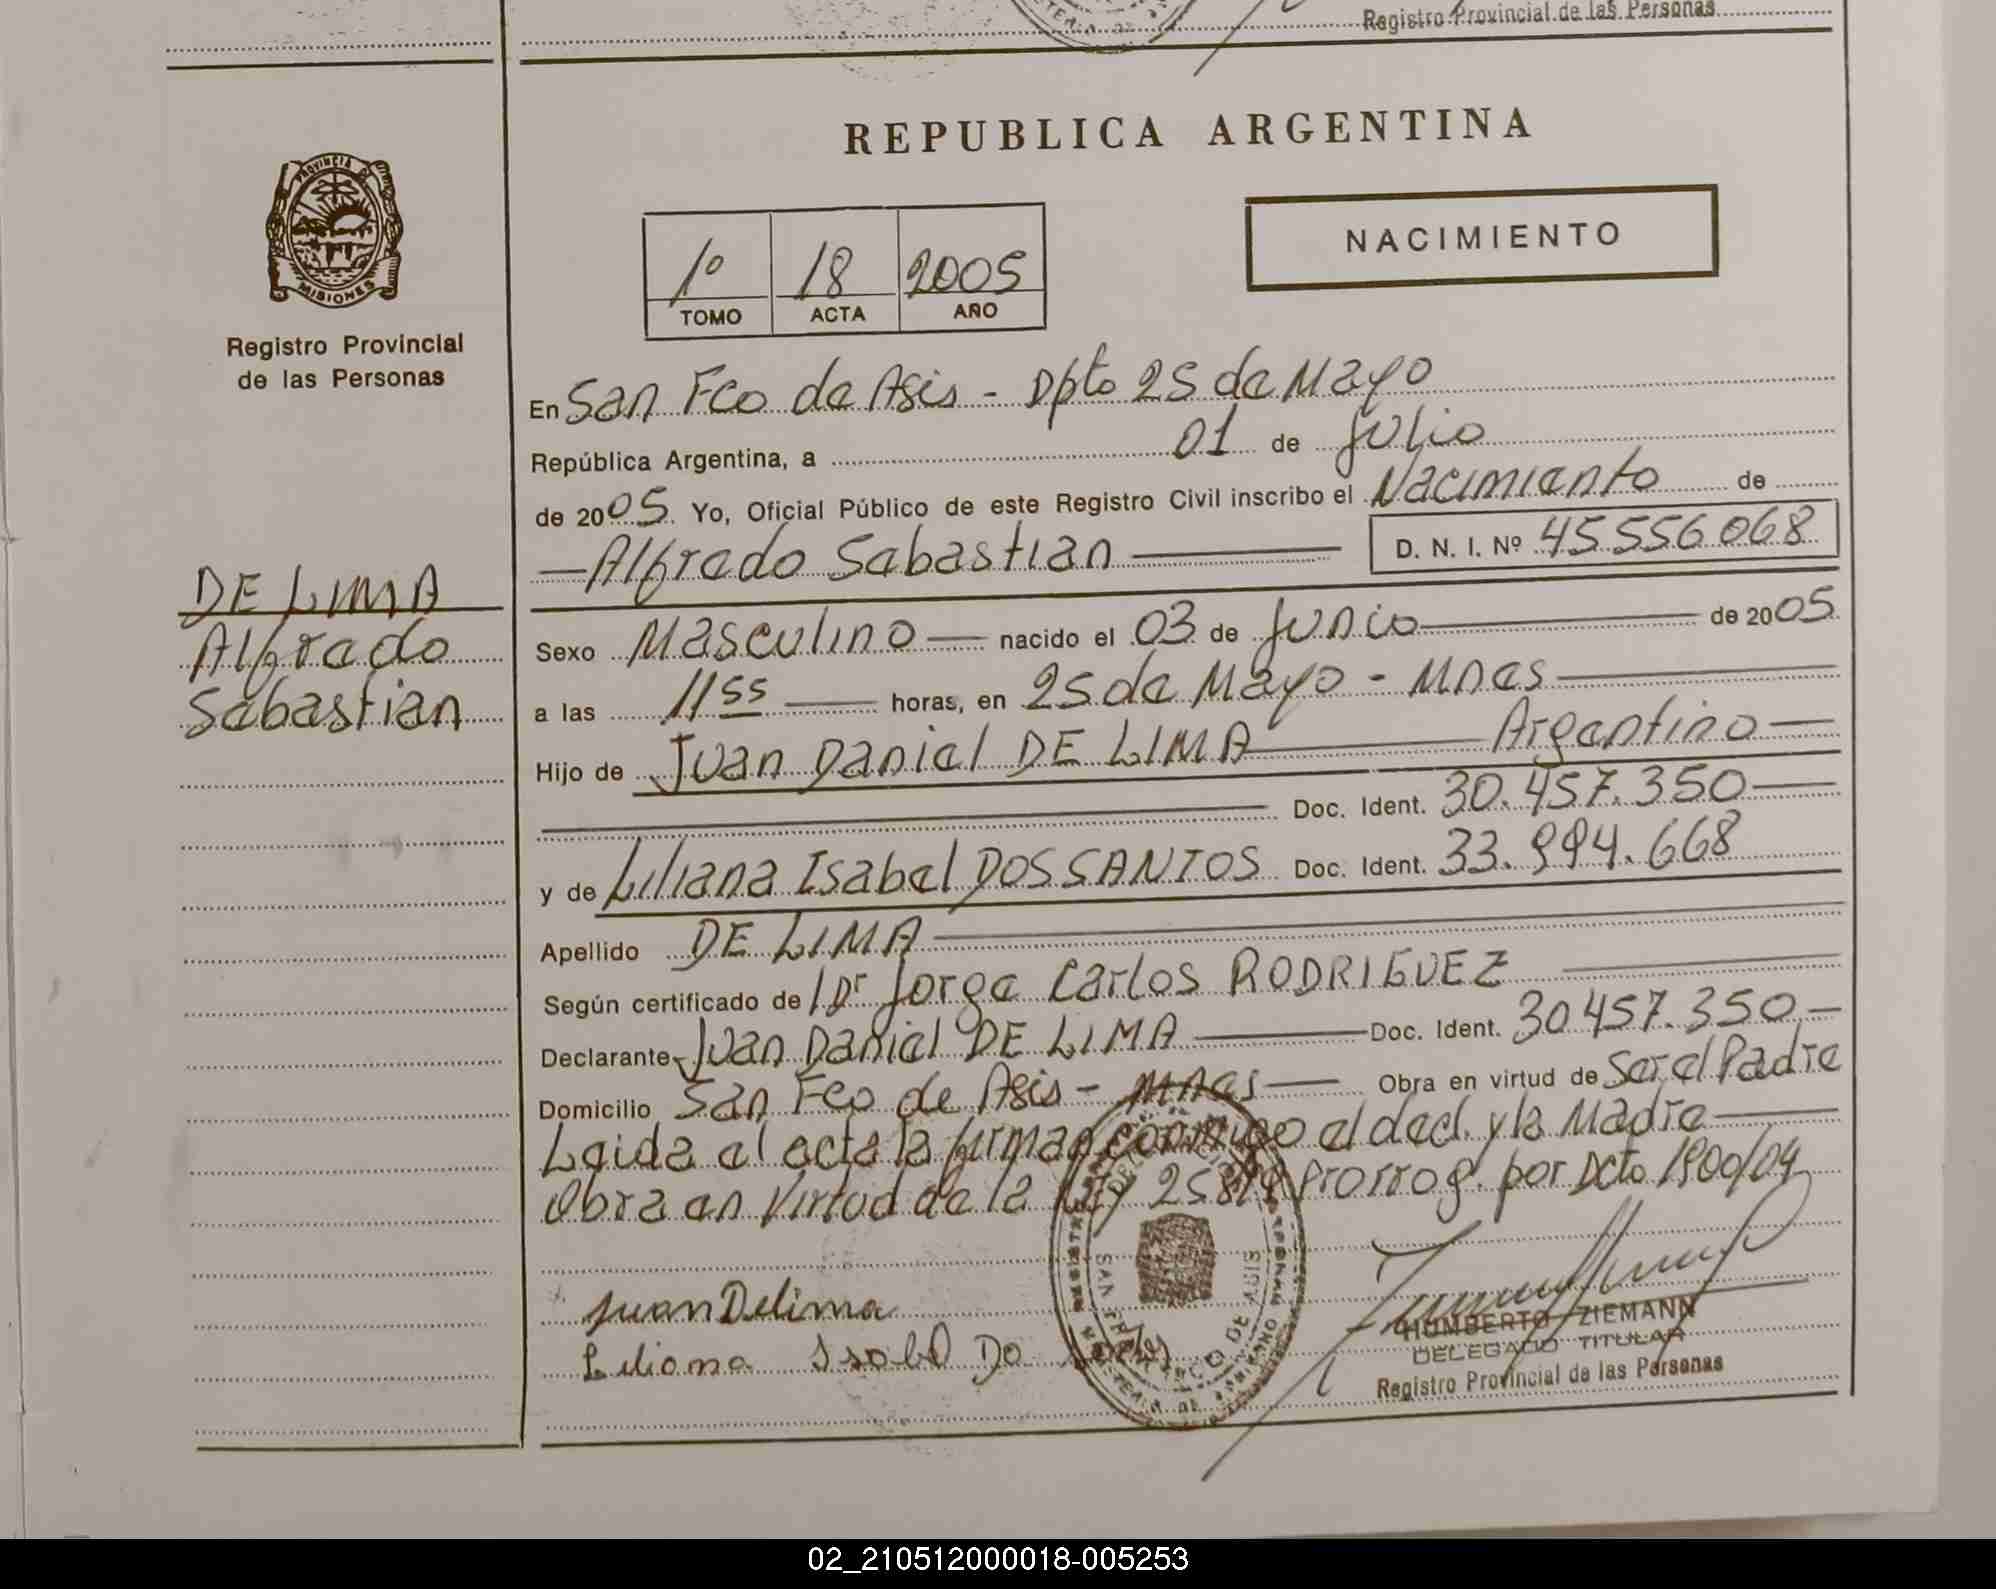 Registro Provincial de las Personas
REPUBLICA ARGENTINA
PROVINCIA DE
MISIONES
Registro Provincial
de las Personas
NACIMIENTO
1º 18 2005
TOMO ACTA AÑO
En San Fco de Asis - Dpto 25 de Mayo
República Argentina, a 01 de Julio
de 2005. Yo, Oficial Público de este Registro Civil inscribo el Nacimiento de
Alfredo Sebastian D. N. I. Nº 45556068
DE LIMA
Alfredo
Sebastian
Sexo Masculino nacido el 03 de Junio de 2005
a las 11 55 horas, en 25 de Mayo - Mnes
Hijo de Juan Daniel DE LIMA Argentino
Doc. Ident. 30.457.350
y de Liliana Isabel DOS SANTOS Doc. Ident. 33.994.668
Apellido DE LIMA
Según certificado de / Dr Jorge Carlos RODRIGUEZ
Declarante Juan Daniel DE LIMA Doc. Ident. 30.457.350
Domicilio San Fco de Asis - Mnes Obra en virtud de Ser el Padre
Leida el acta la firman conmigo el decl. y la Madre
Obra en Virtud de la Ley 25819 Prorrog. por Dcto 1900/04
Juan Delima
Liliana Isabel Do
SAN FRANCISCO DE ASIS
HUMBERTO ZIEMANN
DELEGADO TITULAR
Registro Provincial de las Personas
02_210512000018-005253